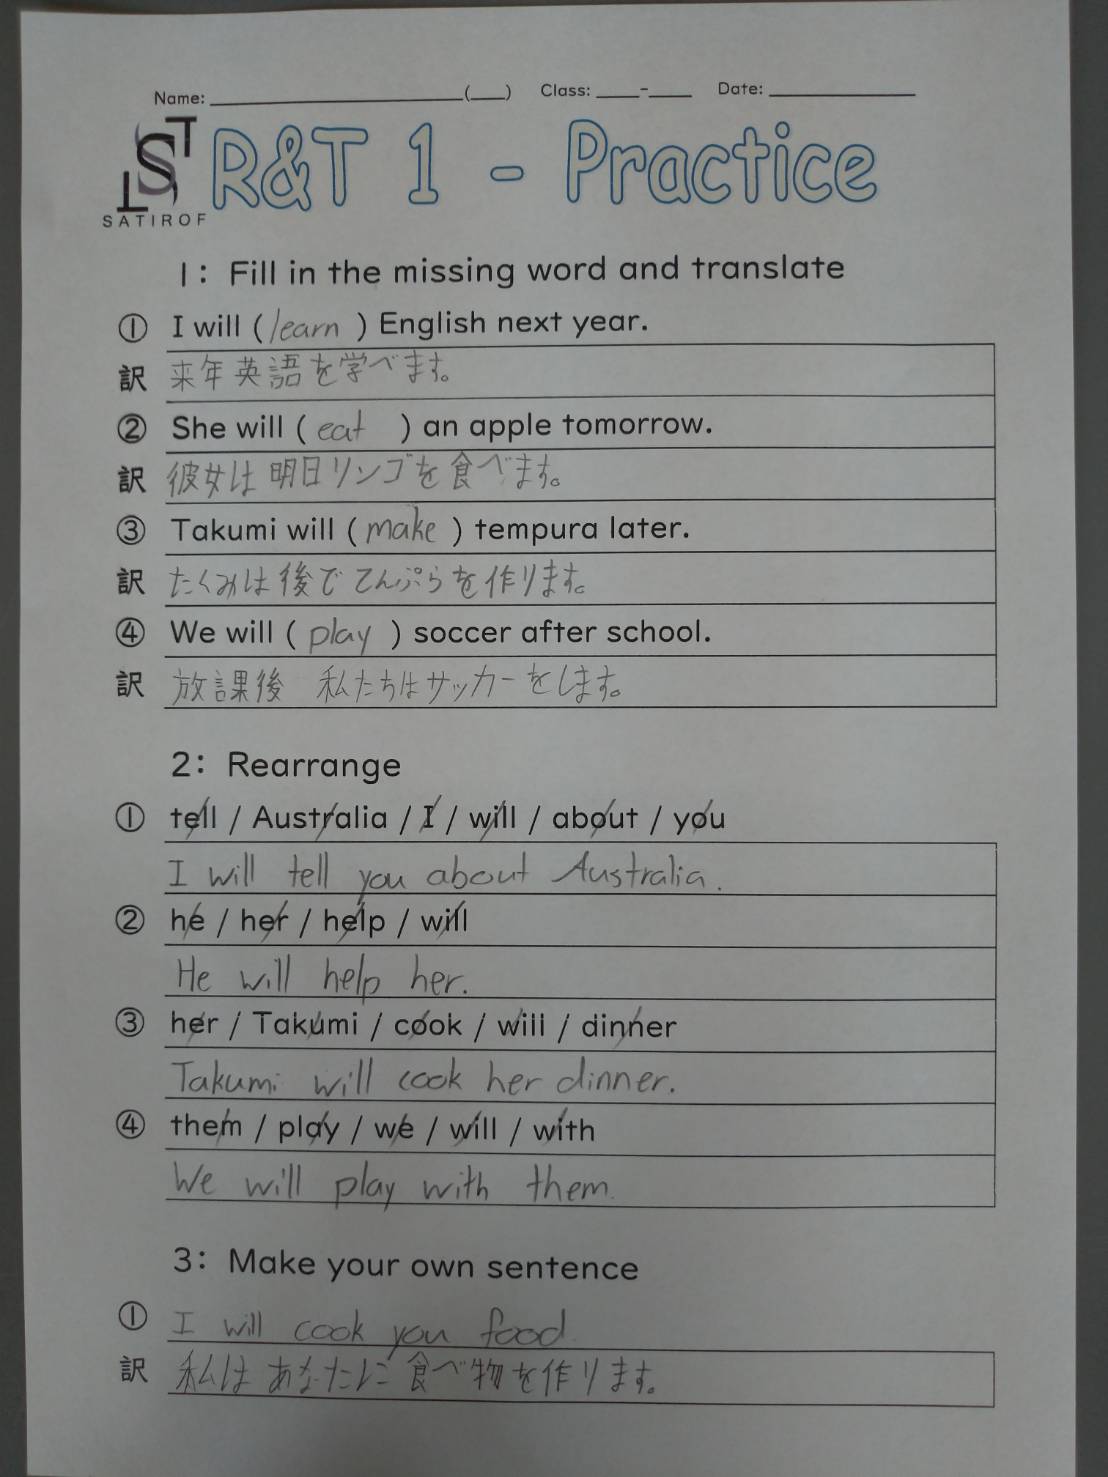 Name: ____________(___) Class: ____-____ Date: ____________
LST
SATIROF
R&T 1 - Practice
1: Fill in the missing word and translate
① I will (learn) English next year.
訳 来年英語を学べます。
② She will (eat) an apple tomorrow.
訳 彼女は明日リンゴを食べます。
③ Takumi will (make) tempura later.
訳 たくみは後でてんぷらを作ります。
④ We will (play) soccer after school.
訳 放課後 私たちはサッカーをします。
2: Rearrange
① tell / Australia / I / will / about / you
I will tell you about Australia.
② he / her / help / will
He will help her.
③ her / Takumi / cook / will / dinner
Takumi will cook her dinner.
④ them / play / we / will / with
We will play with them.
3: Make your own sentence
① I will cook you food.
訳 私はあなたに食べ物を作ります。